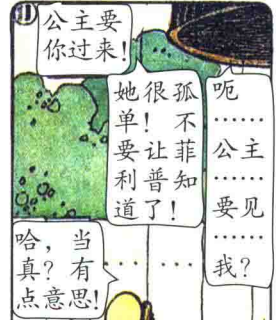 ⑪
公主要
你过来!
她很孤
单! 不
要让菲
利普知
道了!
呃
……
公主
……
要见
……
我?
哈, 当
真? 有
点意思!
… …